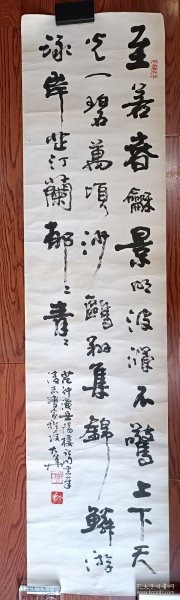 至若春龢景明波瀾不驚上下天
光一碧萬頃沙鷗翔集錦鱗游
泳岸芷汀蘭郁〻青〻
范仲淹岳陽樓記句